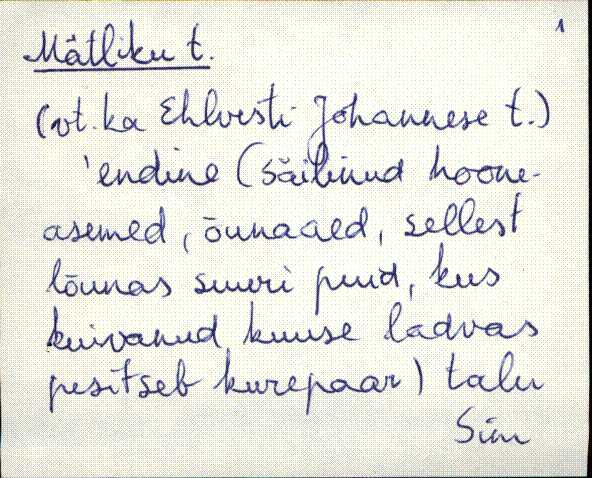 1
Mätliku t.
(vt. ka Ehlvesti Johannese t.)
'endine (säilinud hoone-
asemed, õunaaed, sellest
lõunas suuri puid, kus
kuivanud kuuse ladvas
pesitseb kurepaar) talu
Sim